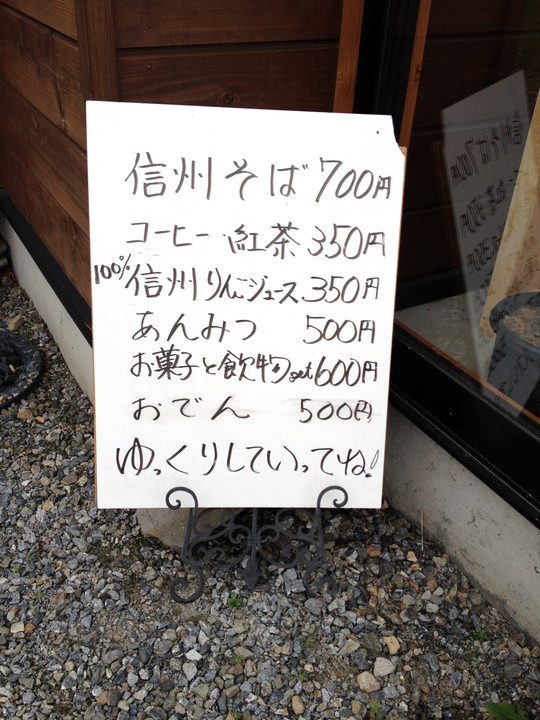 信州そば 700円
コーヒー・紅茶 350円
100% 信州りんごジュース 350円
あんみつ 500円
お菓子と飲物set 600円
おでん 500円
ゆっくりしていってね!